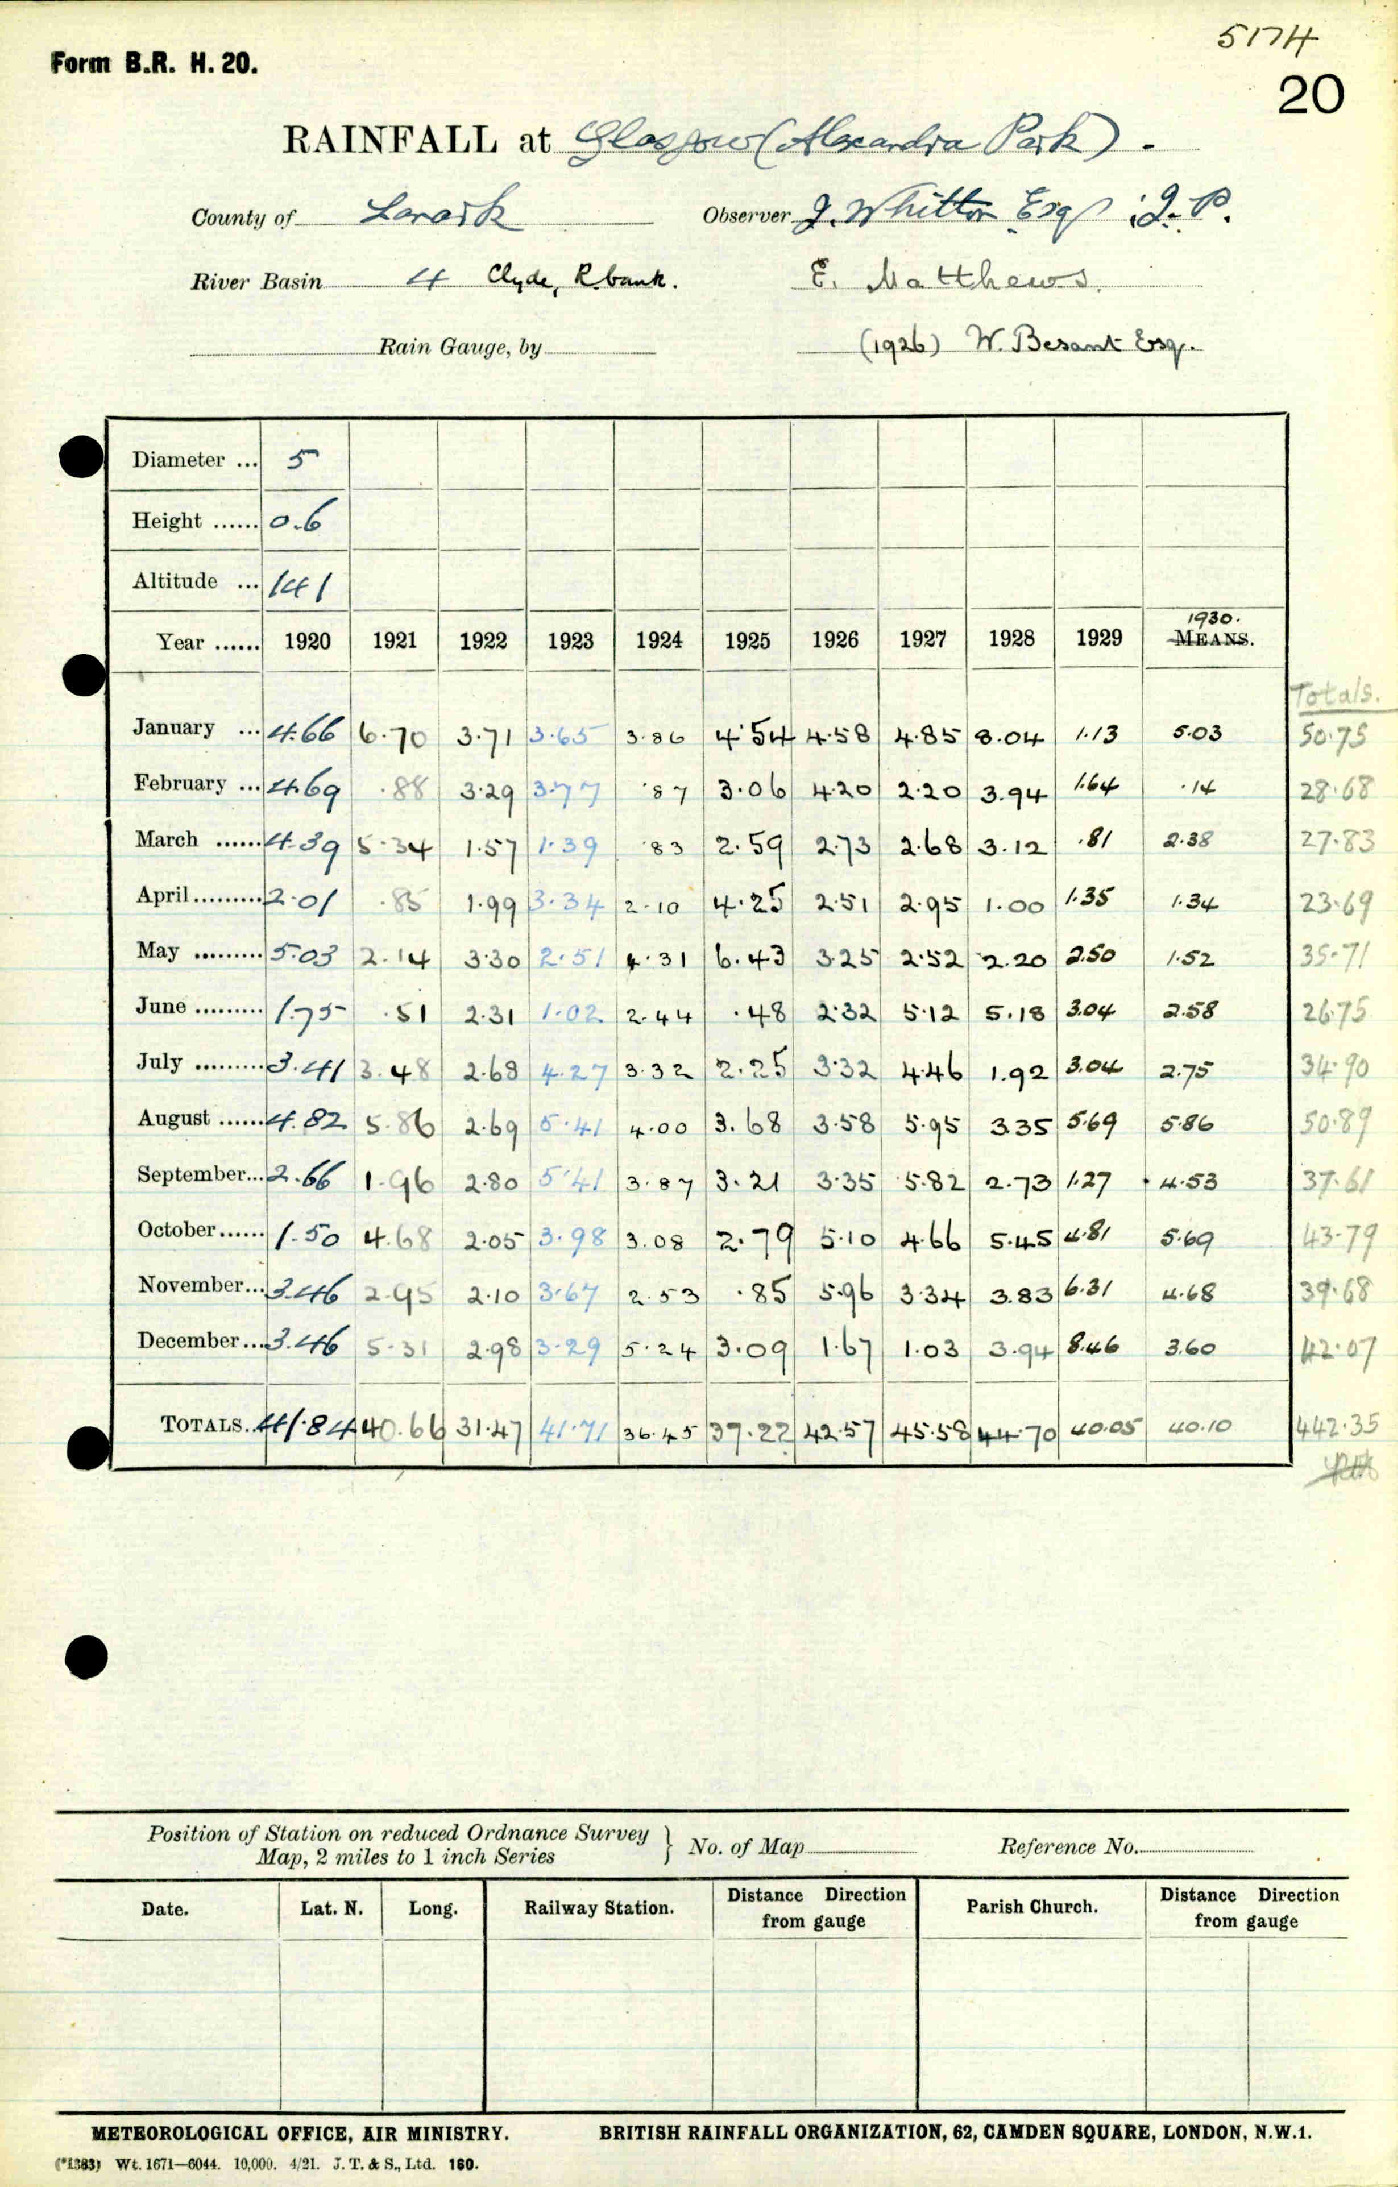 5174
Form B.R. H. 20.
20
RAINFALL at Glasgow (Alexandra Park).
County of Lanark Observer J. Whitton Esq; J.P.
River Basin 4 Clyde, R. bank. E. Matthews.
Rain Gauge, by (1926) W. Besant Esq.
Diameter ... 5
Height ...... 0.6
Altitude ... 141
1930.
Year ...... 1920 1921 1922 1923 1924 1925 1926 1927 1928 1929 MEANS.
Totals.
January ... 4.66 6.70 3.71 3.65 3.86 4.54 4.58 4.85 8.04 1.13 5.03 50.75
February ... 4.69 .88 3.29 3.77 .87 3.06 4.20 2.20 3.94 1.64 .14 28.68
March ...... 4.39 5.34 1.57 1.39 .83 2.59 2.73 2.68 3.12 .81 2.38 27.83
April ......... 2.01 .85 1.99 3.34 2.10 4.25 2.51 2.95 1.00 1.35 1.34 23.69
May ......... 5.03 2.14 3.30 2.51 4.31 6.43 3.25 2.52 2.20 2.50 1.52 35.71
June ......... 1.75 .51 2.31 1.02 2.44 .48 2.32 5.12 5.18 3.04 2.58 26.75
July ......... 3.41 3.48 2.68 4.27 3.32 2.25 3.32 4.46 1.92 3.04 2.75 34.90
August ...... 4.82 5.86 2.69 5.41 4.00 3.68 3.58 5.95 3.35 5.69 5.86 50.89
September... 2.66 1.96 2.80 5.41 3.87 3.21 3.35 5.82 2.73 1.27 4.53 37.61
October ...... 1.50 4.68 2.05 3.98 3.08 2.79 5.10 4.66 5.45 4.81 5.69 43.79
November... 3.46 2.95 2.10 3.67 2.53 .85 5.96 3.34 3.83 6.31 4.68 39.68
December ... 3.46 5.31 2.98 3.29 5.24 3.09 1.67 1.03 3.94 8.46 3.60 42.07
TOTALS.. 41.84 40.66 31.47 41.71 36.45 37.22 42.57 45.58 44.70 40.05 40.10 442.35
Position of Station on reduced Ordnance Survey
Map, 2 miles to 1 inch Series } No. of Map Reference No.
Date. Lat. N. Long. Railway Station. Distance Direction from gauge Parish Church. Distance Direction from gauge
METEOROLOGICAL OFFICE, AIR MINISTRY. BRITISH RAINFALL ORGANIZATION, 62, CAMDEN SQUARE, LONDON, N.W.1.
(*1383) Wt. 1671—6044. 10,000. 4/21. J. T. & S., Ltd. 160.